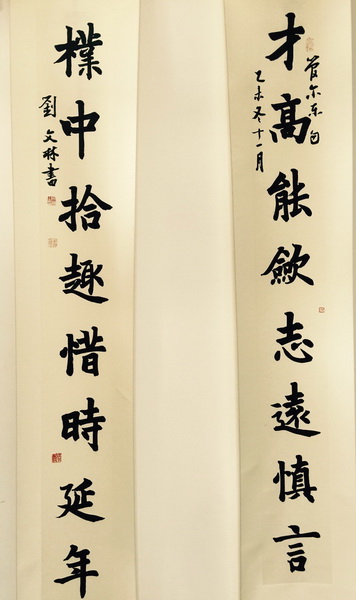 才高能斂志遠慎言
管尔东句
乙未冬十一月
樸中拾趣惜時延年
劉文林書